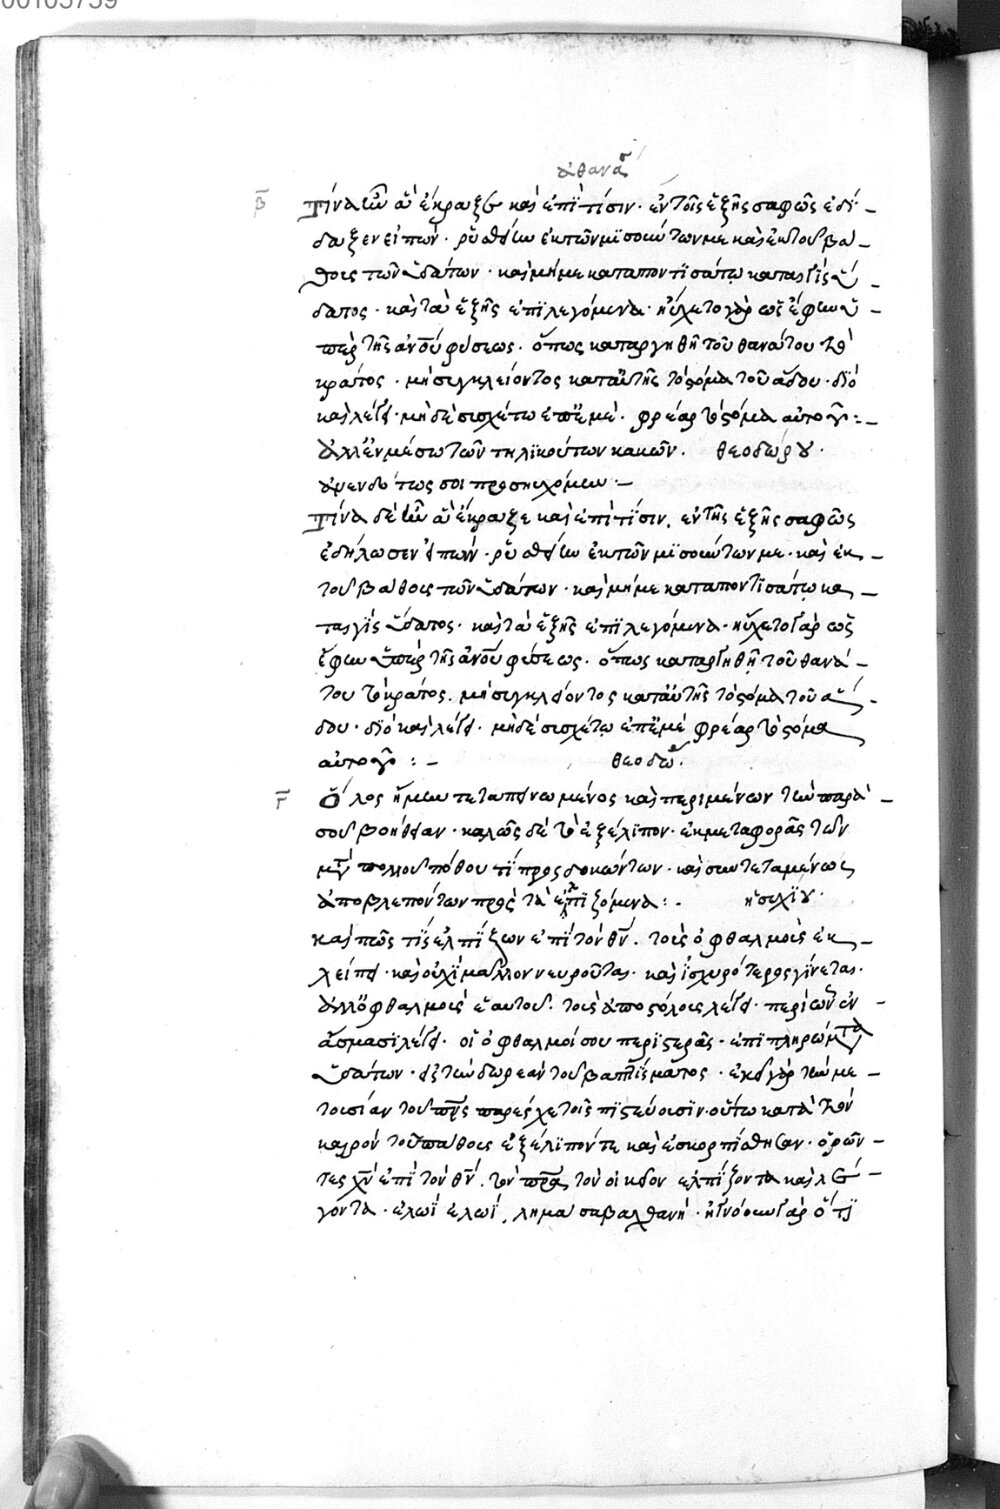 00103759
ἀθανα
β
Τίνα ὧν ἃ ἔκραξε καὶ ἐπὶ τίσιν· ἐν τοῖς ἑξῆς σαφῶς ἐδί-
δαξεν εἰπών· ῥυσθείω ἐκ τῶν μισούντων με καὶ ἐκ τοῦ βά-
θους τῶν ὑδάτων· καὶ μή με καταποντισάτω καταιγὶς ὕ-
δατος· καὶ τὰ ἑξῆς ἐπιλεγόμενα· ηὔχετο γὰρ ὡς ἔφην ὑ-
πὲρ τῆς ἀνου φύσεως· ὅπως καταργηθῇ τοῦ θανάτου τὸ
κράτος· μὴ συγκλείοντος κατ αὐτῆς τὸ στόμα τοῦ ᾅδου· διὸ
καὶ λέγει· μηδὲ συσχέτω ἐπ ἐμὲ φρέαρ τὸ στόμα αὐτοῦ:-
ἀλλ ἐν μέσῳ τῶν τηλικούτων κακῶν. θεοδώρου·
σοι προσηυχόμην·-
Τίνα δὲ ὧν ἃ ἔκραξε καὶ ἐπὶ τίσιν, ἐν τῆς ἑξῆς σαφῶς
ἐδήλωσεν εἰπών· ῥυσθείω ἐκ τῶν μισούντων με· καὶ ἐκ-
τοῦ βάθους τῶν ὑδάτων· καὶ μή με καταποντισάτω κα-
ταιγὶς ὕδατος· καὶ τὰ ἑξῆς ἐπιλεγόμενα· ηὔχετο γὰρ ὡς
ἔφην ὑπὲρ τῆς ἀνου φύσεως· ὅπως καταργηθῇ τοῦ θανά-
του τὸ κράτος. μὴ συγκλείοντος κατ αὐτῆς τὸ στόμα τοῦ ᾅ-
δου· διὸ καὶ λέγει· μηδὲ συσχέτω ἐπ ἐμὲ φρέαρ τὸ στόμα
αὐτοῦ:- θεοδω·
γ
Ὅλος ἤμην τεταπεινωμένος καὶ περιμένων τὴν παρὰ-
σοῦ βοήθειαν· καλῶς δὲ τὸ ἐξέλιπον· ἐκ μεταφορᾶς τῶν
μετὰ πολλοῦ πόθου τι προσδοκώντων· καὶ συντεταμένως
ἀποβλεπόντων πρὸς τὰ ἐλπιζόμενα:- ἡσυχίου·
καὶ πῶς τις ἐλπίζων ἐπὶ τὸν θν. τοὺς ὀφθαλμοὺς ἐκ-
λείπει· καὶ οὐχὶ μᾶλλον νευροῦται· καὶ ἰσχυρότερος γίνεται·
ἀλλ ὀφθαλμοὺς ἑαυτοῦ· τοὺς ἀποστόλους λέγει· περὶ ὧν ἐν-
ᾄσμασι λέγει· οἱ ὀφθαλμοί σου περιστεραὶ· ἐπὶ πληρώματα
ὑδάτων· τὴν δωρεὰν τοῦ βαπτίσματος· τὴν με-
τουσίαν τοῦ πνς παρέσχε τοῖς πιστεύουσιν· οὗτοι κατὰ τὸν
καιρὸν τοῦ πάθους ἐξέλιπόν τε καὶ ἐσκορπίσθησαν· ὁρῶν-
τες χν ἐπὶ τὸν θν. τὸν πρα τὸν οἰκεῖον ἐλπίζοντα καὶ λέ-
γοντα· ἐλωῒ ἐλωῒ, λημα σαβαχθανί· ἠγνόουν γὰρ ὅτι